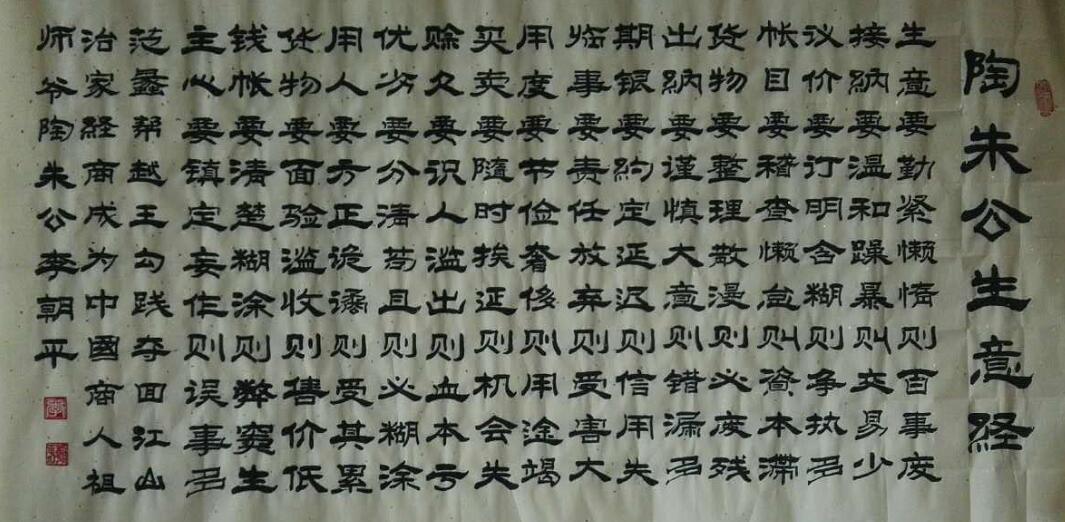 陶朱公生意经
生意要勤紧懒惰则百事废
接納要温和躁暴则交易少
议价要订明含糊则争执多
帐目要稽查懒怠则資本滯
货物要整理散漫则必废残
出納要谨慎大意则错漏多
期银要约定延迟则信用失
临事要责任放弃则受害大
用度要节俭奢侈则用途竭
买卖要隨时挨延则机会失
赊欠要识人滥出则血本亏
优劣要分清苟且则必糊涂
用人要方正诡谲则受其累
货物要面验滥收则售价低
钱帐要清楚糊涂则弊窦生
主心要镇定妄作则误事多
范蠡帮越王勾践夺回江山
治家経商成为中國商人祖
师爷陶朱公李朝平